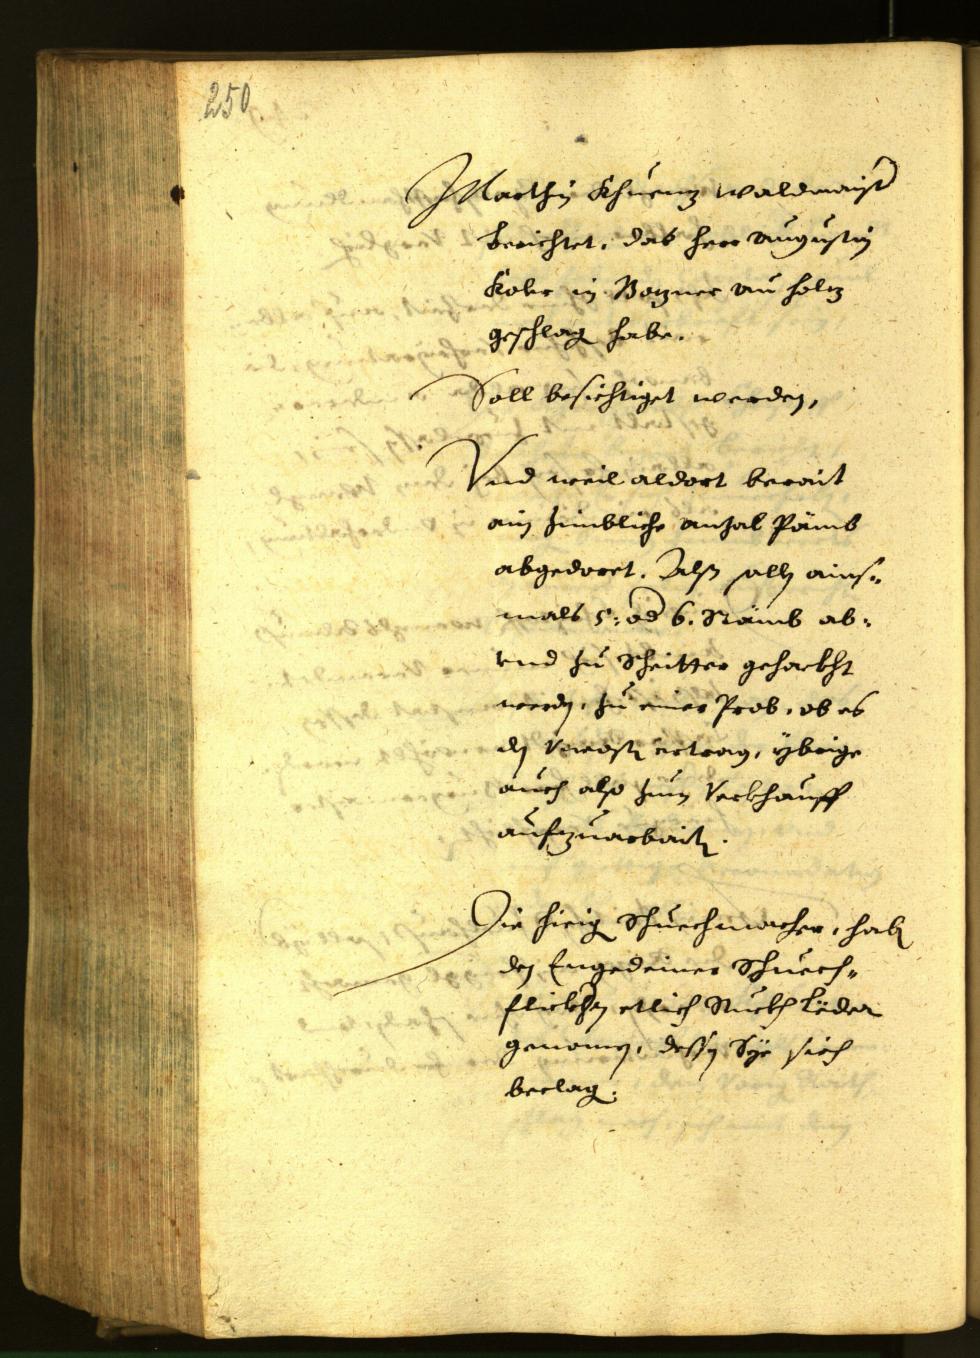 250
Marthin Khuenz waldmaister
berichtet, das herr Augustin
Kobr in Bozner Au holz
geschlagen habe.
Soll besichtiget werden,
Vnd weil aldort berait
ain zimbliche anzal Pämb
abgedorret. Als solln ains-
mals 5: oder 6. Stämb ab-
vnd zu Scheitter gehackht
werden, zu einer Prob, ob es
den Vncosten ertrag, ybrige
auch also zum Verkhauff
aufzuarbaiten.
Die hieigen Schuechmacher, haben
den Engedeiner Schuech-
flickhern etlich Stuckh Leder
genomen, dessen Sye sich
beclagen.